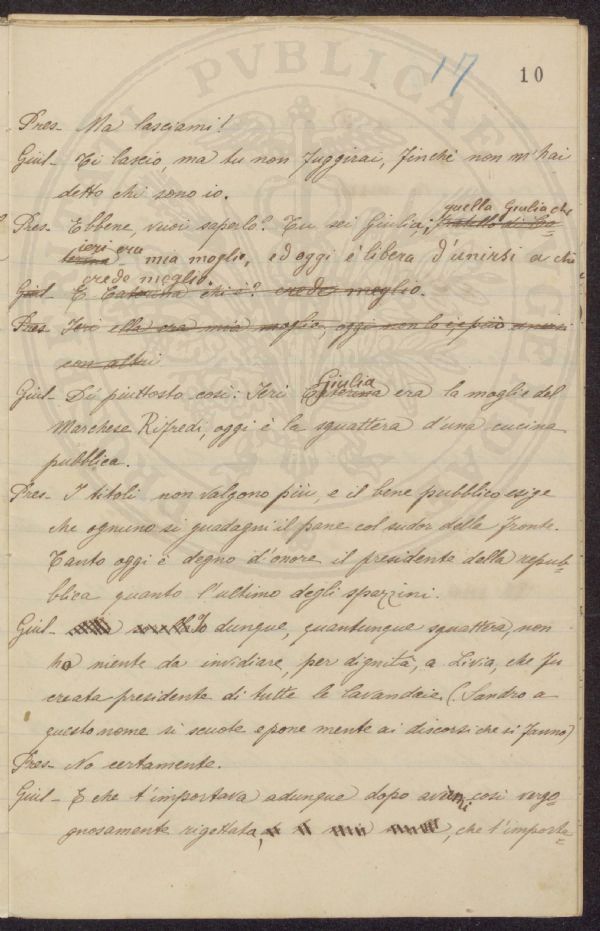 17
10
Pres- Ma lasciami!
Giul- Ti lascio, ma tu non fuggirai, finchè non m'hai
detto chi sono io.
quella Giulia che
Pres- Ebbene, vuoi saperlo? Tu sei Giulia,
ieri era
mia moglie, ed oggi è libera d'unirsi a chi
crede meglio.
Giul- E Caterina chi è? crede meglio.
Pres- Ieri ella era mia moglie, oggi non lo è più
con altri
Giulia
Giul- Di' piuttosto così: Ieri Caterina era la moglie del
Marchese Rifredi, oggi è la sguattera d'una cucina
pubblica.
Pres- I titoli non valgono più, e il bene pubblico esige
che ognuno si guadagni il pane col sudor della fronte.
Tanto oggi è degno d'onore il presidente della repub-
blica quanto l'ultimo degli spazzini.
Giul- Io dunque, quantunque sguattera, non
ho niente da invidiare, per dignità, a Livia, che fu
creata presidente di tutte le lavandeie. (Sandro a
questo nome si scuote e pone mente ai discorsi che si fanno)
Pres- No certamente.
Giul- E che t'importava adunque dopo avermi così vergo-
gnosamente rigettata, che t'importa-